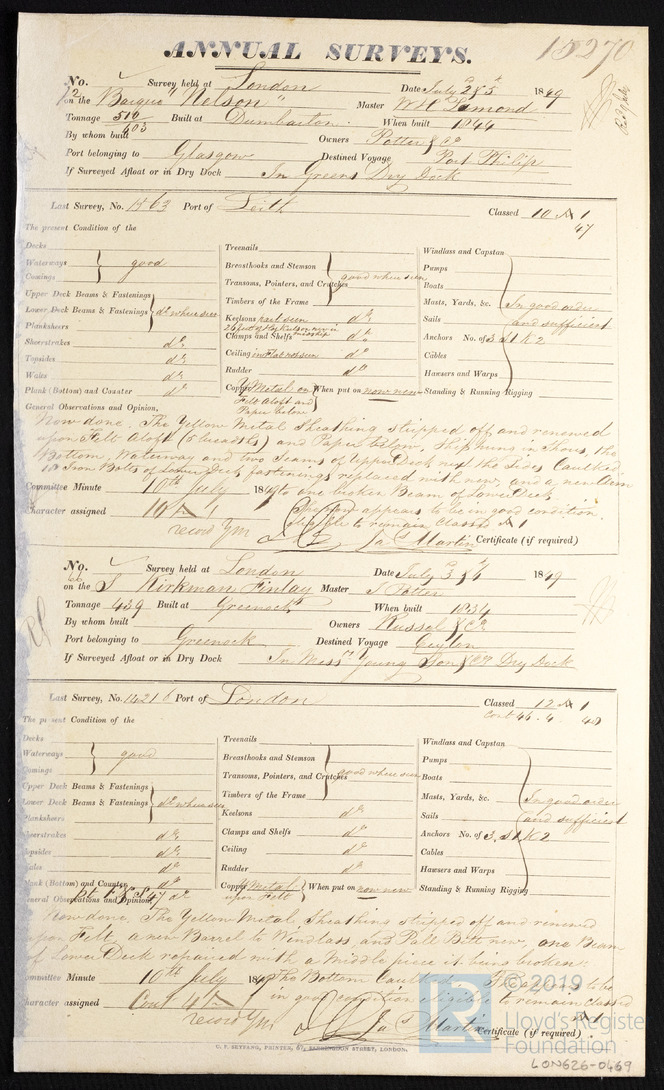 ANNUAL SURVEYS. 15270
No. 72 Survey held at London Date July 2 & 5th 1849
on the Barque "Nelson" Master W H
Tonnage 510 603 Built at Dumbarton When built 1844
By whom built Owners Potter & Co
Port belonging to Glasgow Destined Voyage Port Philip
If Surveyed Afloat or in Dry Dock In Greens Dry Dock
Last Survey, No. Port of Leith Classed 10 A 1
47
The present Condition of the
Decks
Waterways good
Comings
Upper Deck Beams & Fastenings
Lower Deck Beams & Fastenings do where seen
Planksheers
Sheerstrakes do
Topsides do
Wales do
Plank (Bottom) and Counter do
Treenails
Breasthooks and Stemson
Transoms, Pointers, and Crutches good where seen
Timbers of the Frame
Keelsons part seen do
Clamps and Shelfs do
Ceiling in Flat not seen do
Rudder do
Copper Y Metal on Felt Aloft and Paper below When put on now new
Windlass and Capstan
Pumps
Boats
Masts, Yards, &c. In good order
Sails and sufficient
Anchors No. of 3. S1 K2
Cables
Hawsers and Warps
Standing & Running Rigging
General Observations and Opinion,
Now done. The Yellow Metal Sheathing stripped off and renewed
upon Felt Aloft (5 breadths) and Paper below, Ship hung in Shores, the
Bottom, Waterway and two Seams of Upper Deck next the Sides Caulked,
Iron Bolts of Lower Deck fastenings replaced with new, and a new Arm
to one broken Beam of Lower Deck
Committee Minute 10th July 1849
appears to be in good condition.
Character assigned 10 A 1 eligible to remain Classed A 1
record YM Jas Martin Certificate (if required)
No. 66 Survey held at London Date July 3 & 4 1849
on the S Kirkman Finlay Master S Potter
Tonnage 439 Built at Greenock When built 1834
By whom built Owners Russel & Co
Port belonging to Greenock Destined Voyage Ceylon
If Surveyed Afloat or in Dry Dock In Messrs Young Son & Co Dry Dock
Last Survey, No. 14216 Port of London Classed 12 A 1
Cont 46. 4
The present Condition of the
Decks
Waterways good
Comings
Upper Deck Beams & Fastenings
Lower Deck Beams & Fastenings do where seen
Planksheers
Sheerstrakes do
Topsides do
Wales do
Plank (Bottom) and Counter do
Treenails
Breasthooks and Stemson
Transoms, Pointers, and Crutches good where seen
Timbers of the Frame
Keelsons do
Clamps and Shelfs do
Ceiling do
Rudder do
Copper Y Metal upon Felt When put on now new
Windlass and Capstan
Pumps
Boats
Masts, Yards, &c. In good order
Sails and sufficient
Anchors No. of 3. S1 K2
Cables
Hawsers and Warps
Standing & Running Rigging
General Observations and Opinion,
Now done. The Yellow Metal Sheathing stripped off and renewed
upon Felt, a new Barrel to Windlass, and Pall Bitt new, one Beam
of Lower Deck repaired with a Middle piece it being broken.
Committee Minute 10th July 1849 The Bottom Caulked. appears to be
in good condition eligible to remain classed
Character assigned Cont 4 A
record YM Jas Martin Certificate (if required)
G. F. SEYFANG, PRINTER, 57, FARRINGDON STREET, LONDON.
LR © 2019
Lloyd's Register
Foundation
LON626-0469